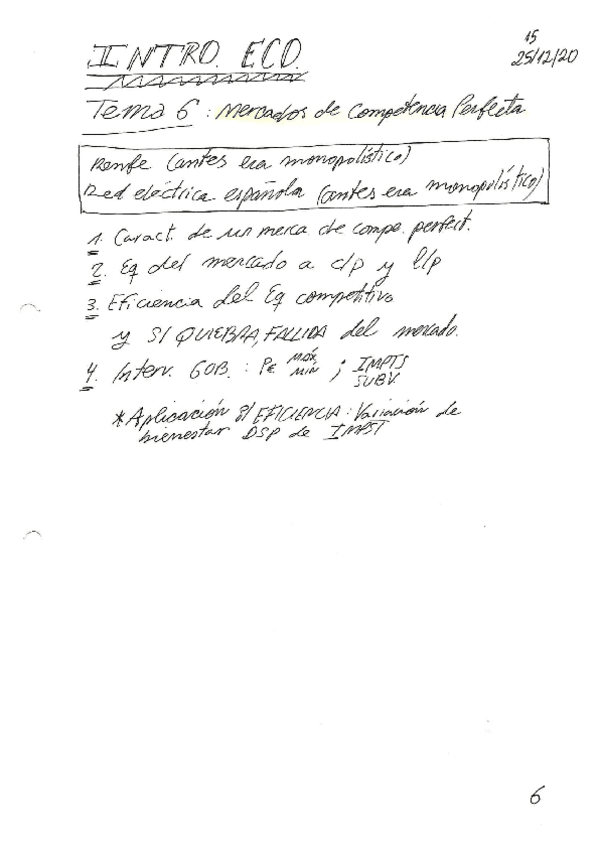 INTRO. ECO.
15
25/12/20
Tema 6: Mercados de Competencia Perfecta
Renfe (antes era monopolístico)
Red eléctrica española (antes era monopolístico)
1. Caract. de un merca. de compe. perfect.
2. Eq del mercado a c/p y l/p
3. Eficiencia del Eq competitivo
y SI QUIEBRA, FALLIDA del mercado.
4. Interv. GOB. : Pe MÁX MIN ; IMPTS SUBV.
*Aplicación EFICIENCIA: Variación de
bienestar DSP de IMPST
6